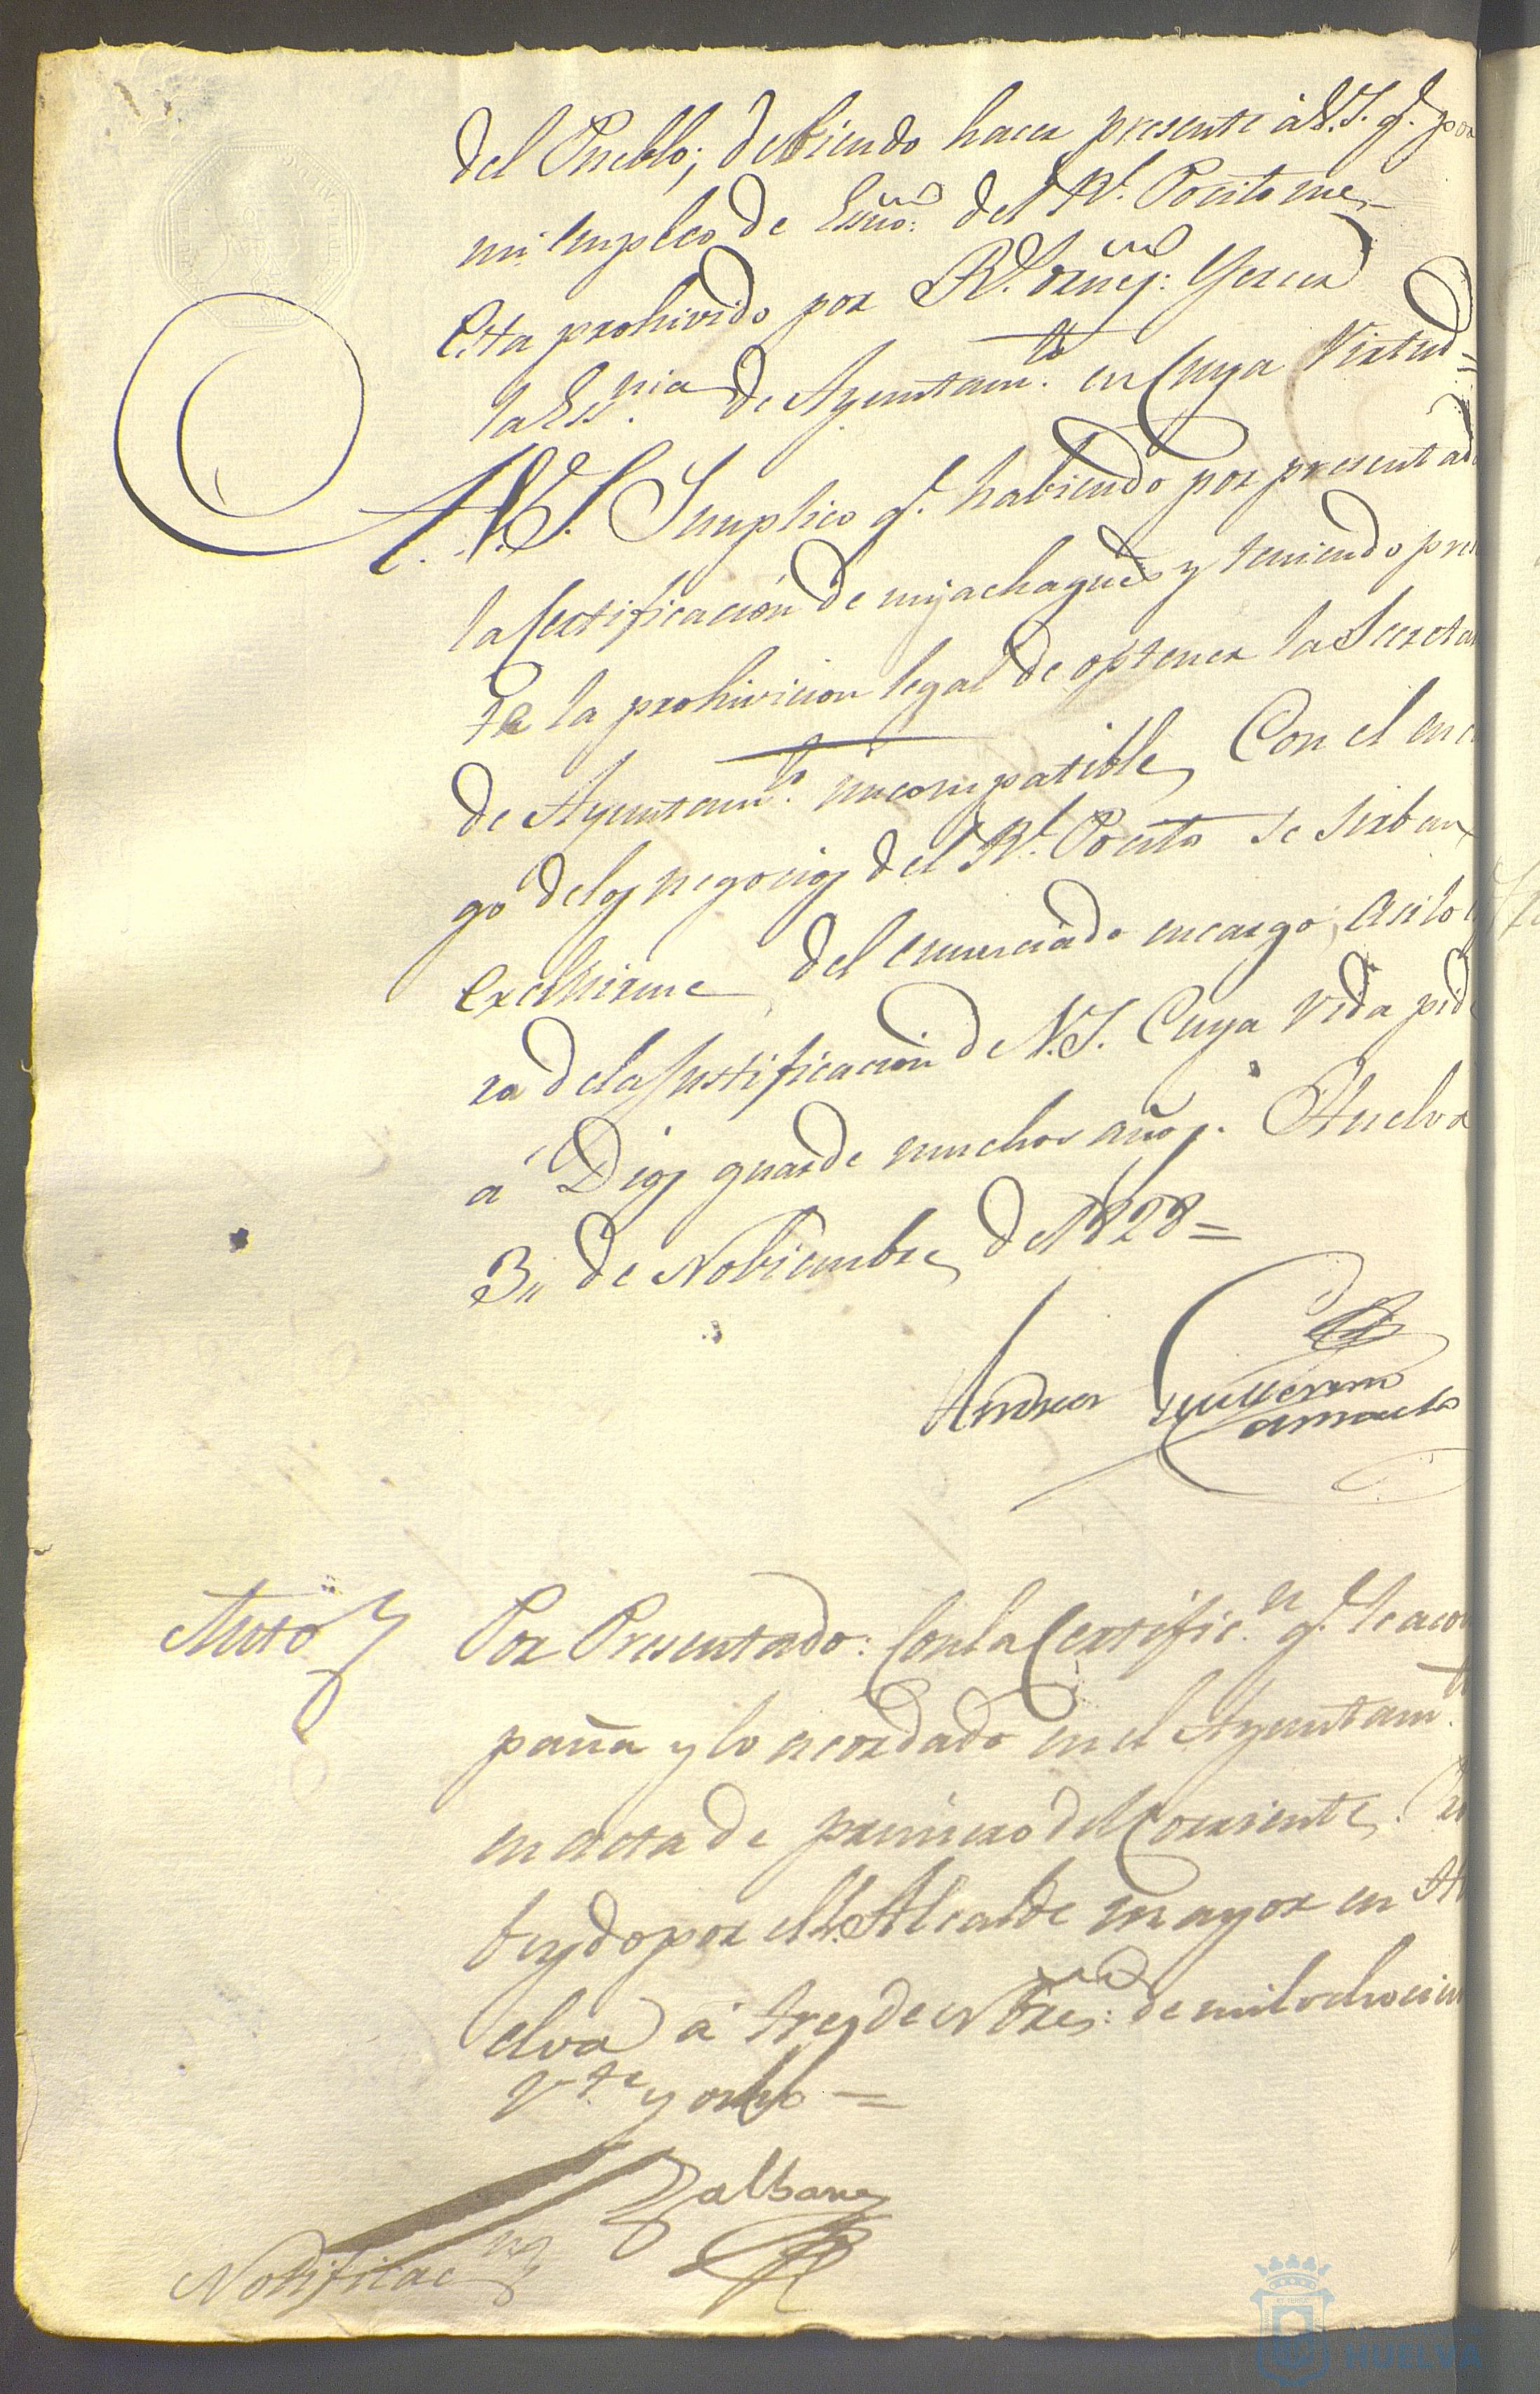 del Pueblo; debiendo hacer presente á V.S. q.e por
mi empleo de Essno: del Rl. Pocito me
esta prohivido por Rs. orñes: Gercer
la Ess.nia de Ayuntam.to en Cuya Virtud=
A. V.S. Sunplico q.e habiendo por presentad
la Certificación de mis achaques y teniendo pres
te la prohivicion legal de optener la Secreta
de Ayuntam.to incompatible Con el enc
go delos negocios del Rl. Pocito se sirban
del enunciado encargo, asi lo
ra dela Justificación de V.S. Cuya vida pid
á Dios guarde muchos años. Huelva
3,, de Nobiembre de 1828=
Andres Guillermo
Auto
Por Presentado: Con la Certific.n q.e le acom
paña y lo acordado en el Ayuntam.to
en acta de primero del Corriente. Pro
beydo por el S. Alcalde mayor en Hu
elva á tres de Nbre: de mil ochocien
V.te y ocho =
Galbany
Notificac.n
HUELVA